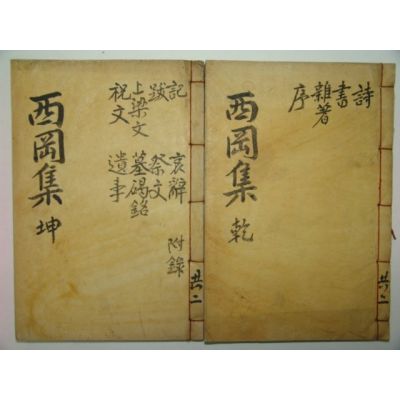 詩
書
雜著
序
西岡集
乾
共二
記
跋
上梁文
祝文
哀辭
祭文
墓碣銘
遺事
附錄
西岡集
坤
共二